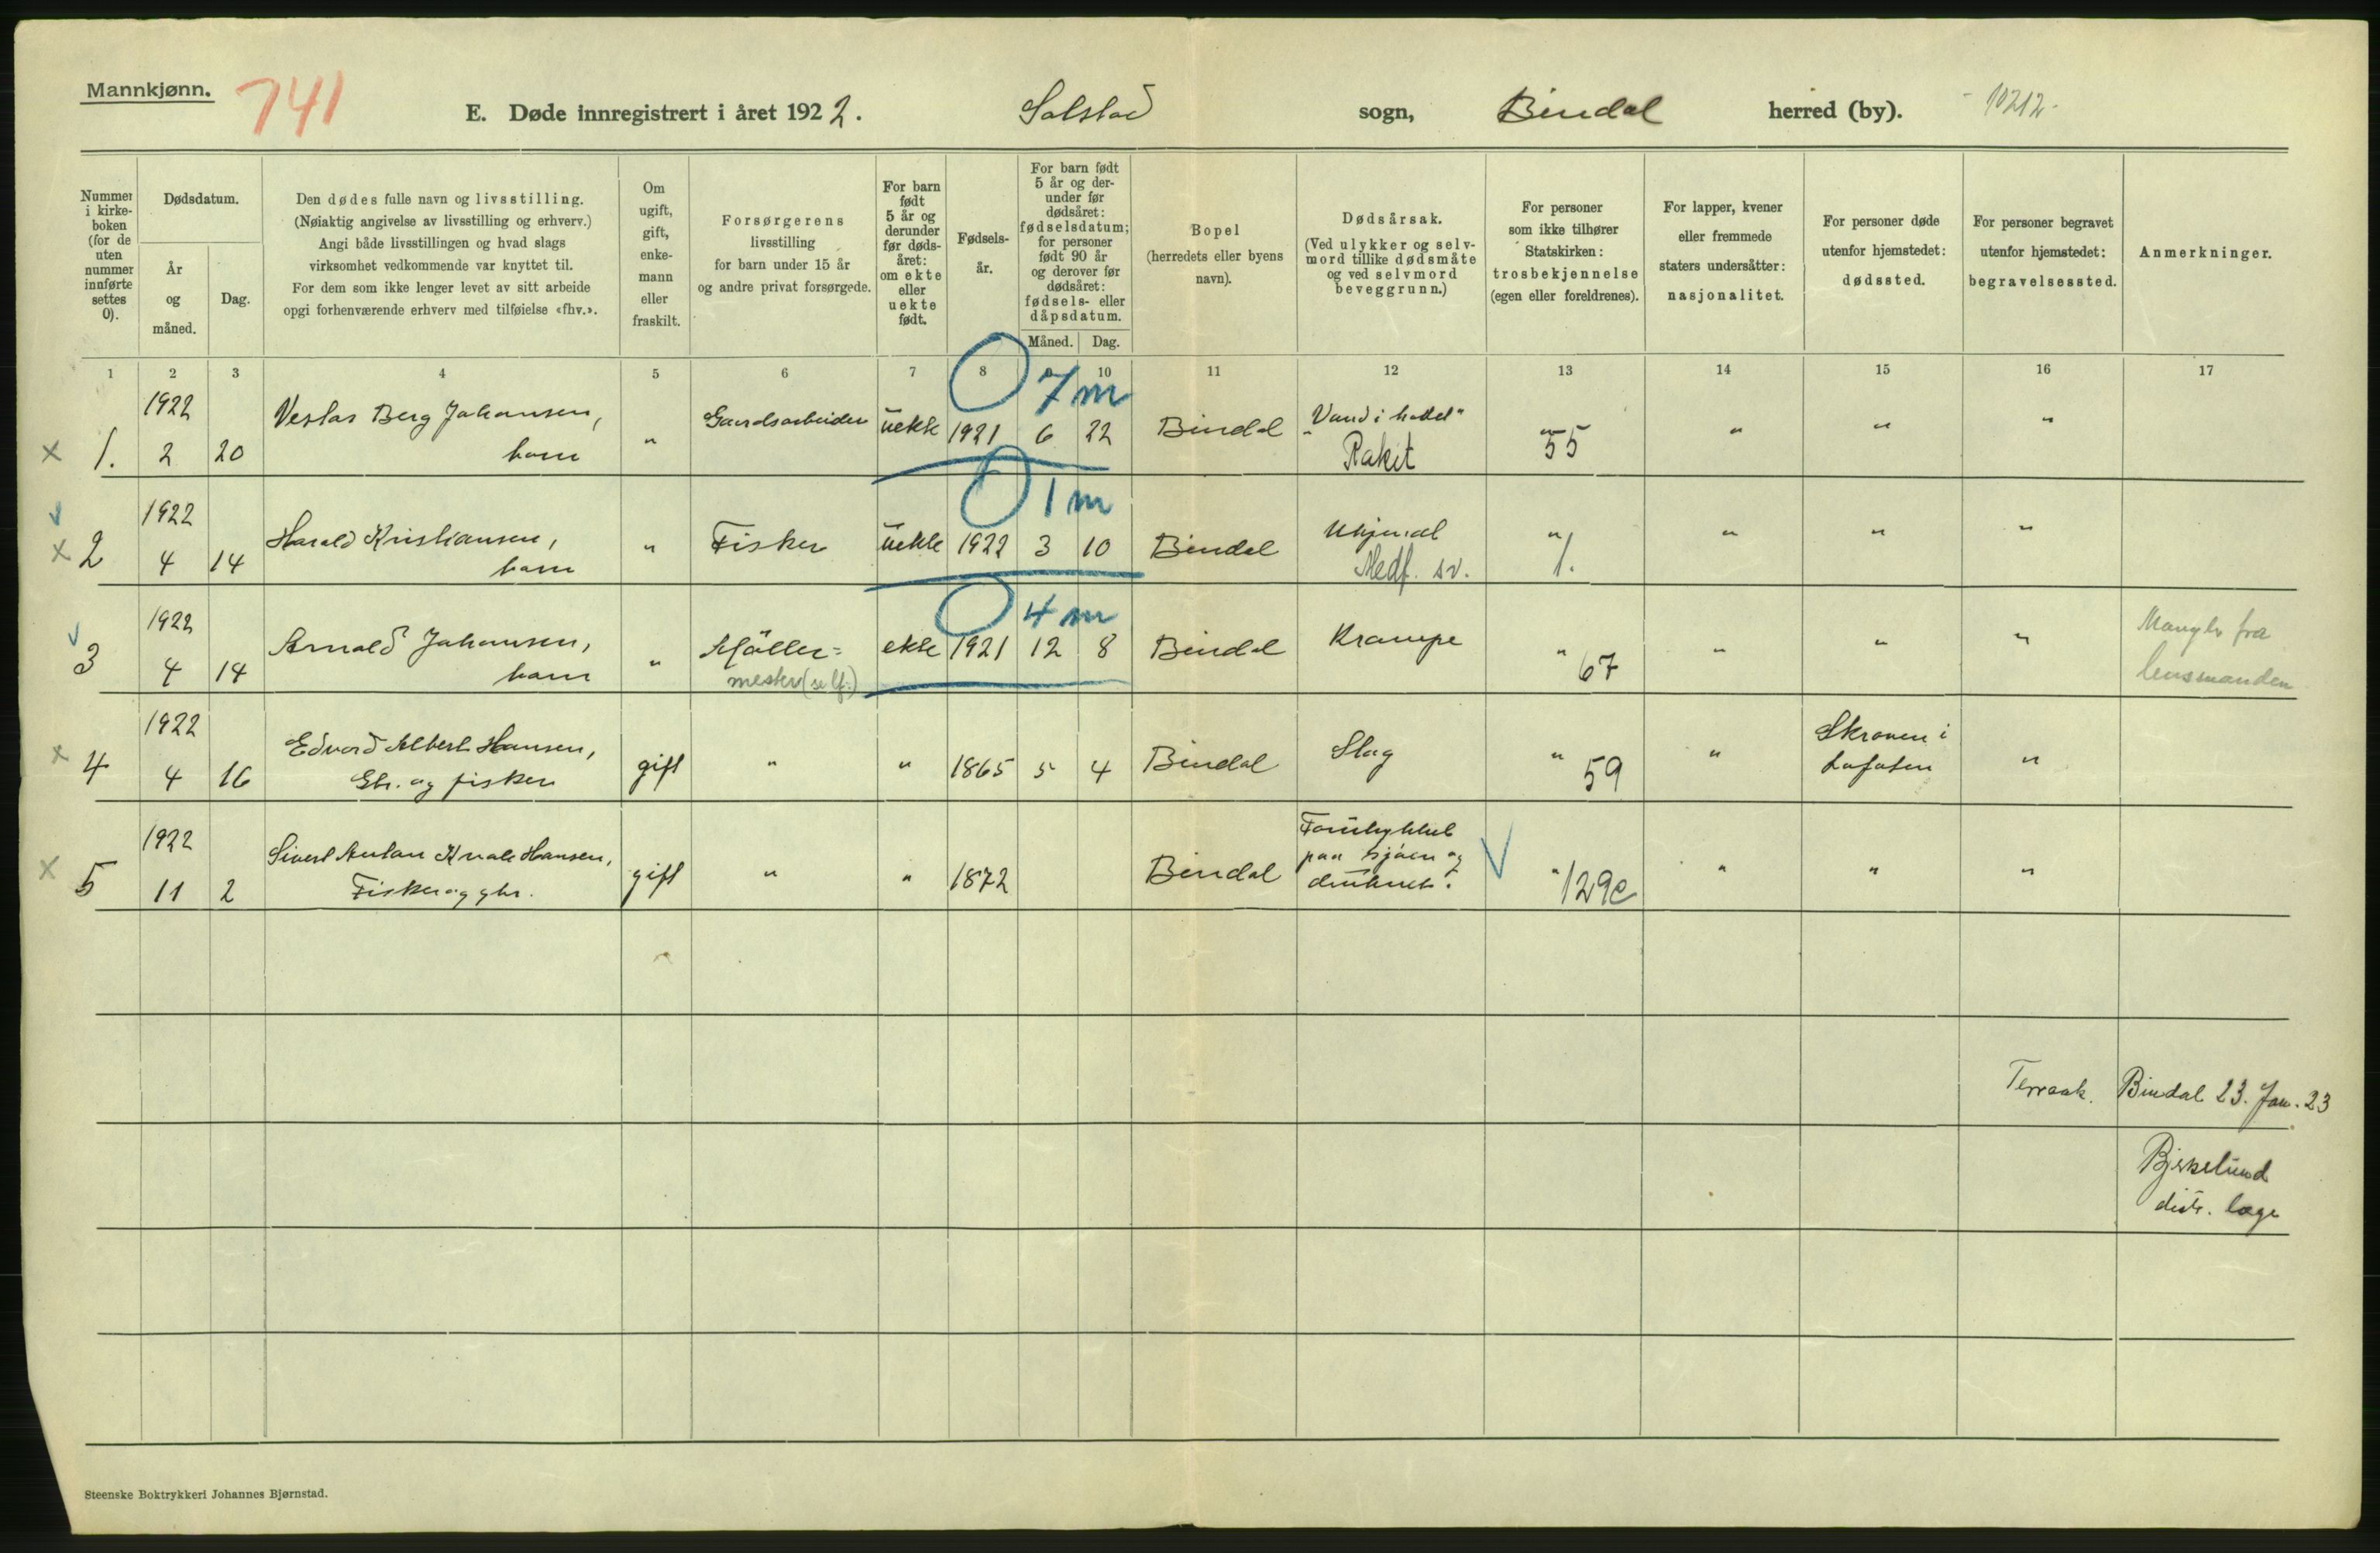 Mannkjønn.
741
E. Døde innregistrert i året 1922.
Solstad sogn, Bindal herred (by).
10212.
Nummer i kirkeboken (for de uten nummer innførte settes 0).
Dødsdatum.
År og måned.
Dag.
Den dødes fulle navn og livsstilling.
(Nøiaktig angivelse av livsstilling og erhverv.)
Angi både livsstillingen og hvad slags
virksomhet vedkommende var knyttet til.
For dem som ikke lenger levet av sitt arbeide
opgi forhenværende erhverv med tilføielse «fhv.».
Om ugift, gift, enkemann eller fraskilt.
Forsørgerens
livsstilling
for barn under 15 år
og andre privat forsørgede.
For barn født 5 år og derunder før dødsåret: om ekte eller uekte født.
Fødselsår.
For barn født 5 år og derunder før dødsåret: fødselsdatum; for personer født 90 år og derover før dødsåret: fødsels- eller dåpsdatum.
Måned.
Dag.
Bopel
(herredets eller byens
navn).
Dødsårsak.
(Ved ulykker og selvmord tillike dødsmåte og ved selvmord beveggrunn.)
For personer
som ikke tilhører
Statskirken:
trosbekjennelse
(egen eller foreldrenes).
For lapper, kvener
eller fremmede
staters undersåtter:
nasjonalitet.
For personer døde
utenfor hjemstedet:
dødssted.
For personer begravet
utenfor hjemstedet:
begravelsessted.
Anmerkninger.
1 2 3 4 5 6 7 8 9 10 11 12 13 14 15 16 17
7 m
x 1. 1922 2 20 Vestar Berg Johansen, barn " Gaardsarbeider uekte 1921 6 22 Bindal "Vand i hodet" Rakit " 55 " " "
1 m
x 2 1922 4 14 Harald Kristiansen, barn " Fisker uekte 1922 3 10 Bindal Ukjendt Medf. sv. " 1. " " "
4 m
3 1922 4 14 Arnold Johansen, barn " Møller= mester (self.) ekte 1921 12 8 Bindal Krampe " 67 " " " Mangler fra lensmanden
x 4 1922 4 16 Edvard Albert Hansen, Gbr. og fisker gift " " 1865 5 4 Bindal Slag " 59 " Skroven i Lofoten "
x 5 1922 11 2 Sivert Anton Kvale Hansen, Fisker og gbr. gift " " 1872 Bindal Forulykket paa sjøen og druknet. " 129c " " "
Terraak. Bindal 23. Jan. 23
Bjerkelund
distr. læge
Steenske Boktrykkeri Johannes Bjørnstad.